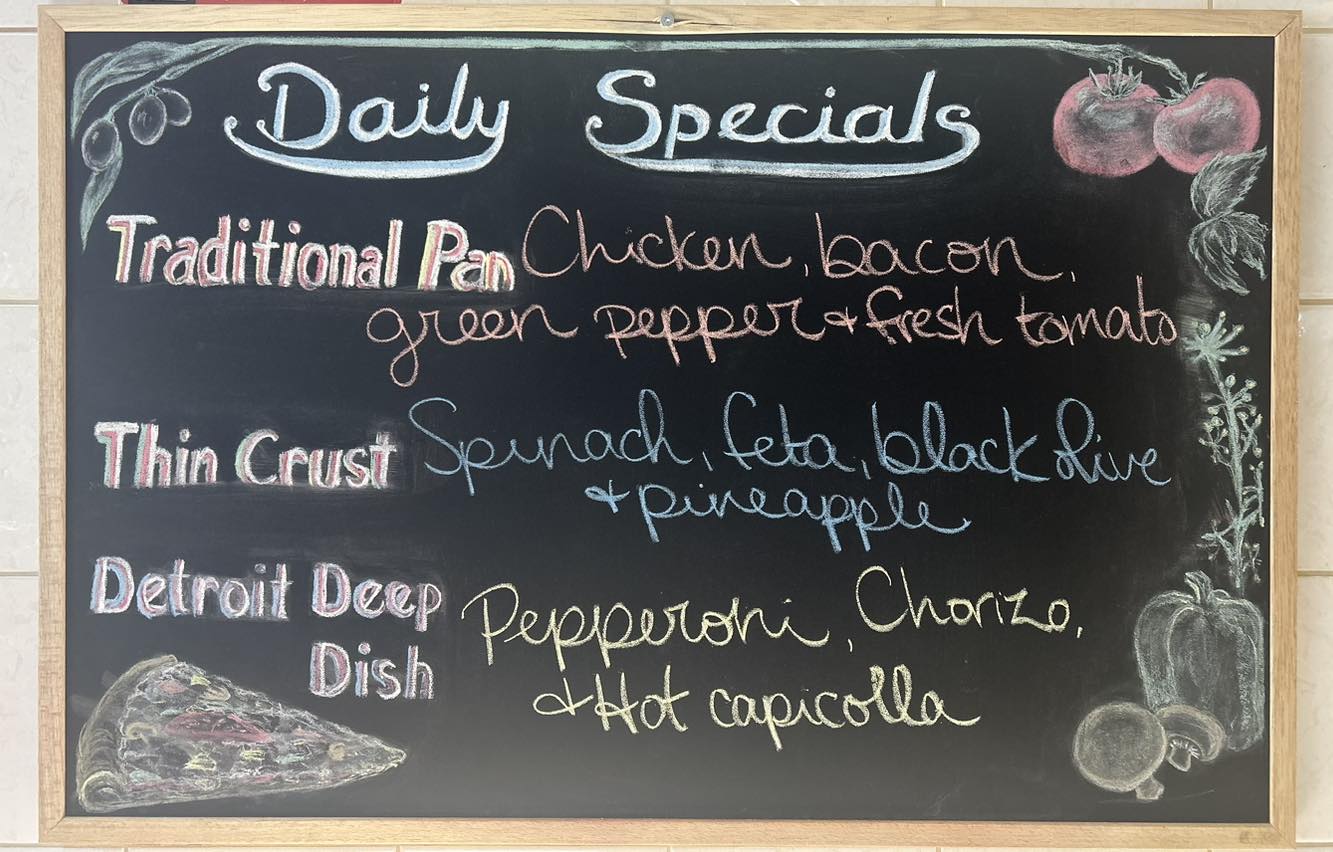 Daily Specials
Traditional Pan Chicken, bacon,
green pepper & fresh tomato
Thin Crust Spinach, feta, black olive
& pineapple
Detroit Deep Dish Pepperoni, Chorizo,
& Hot capicolla